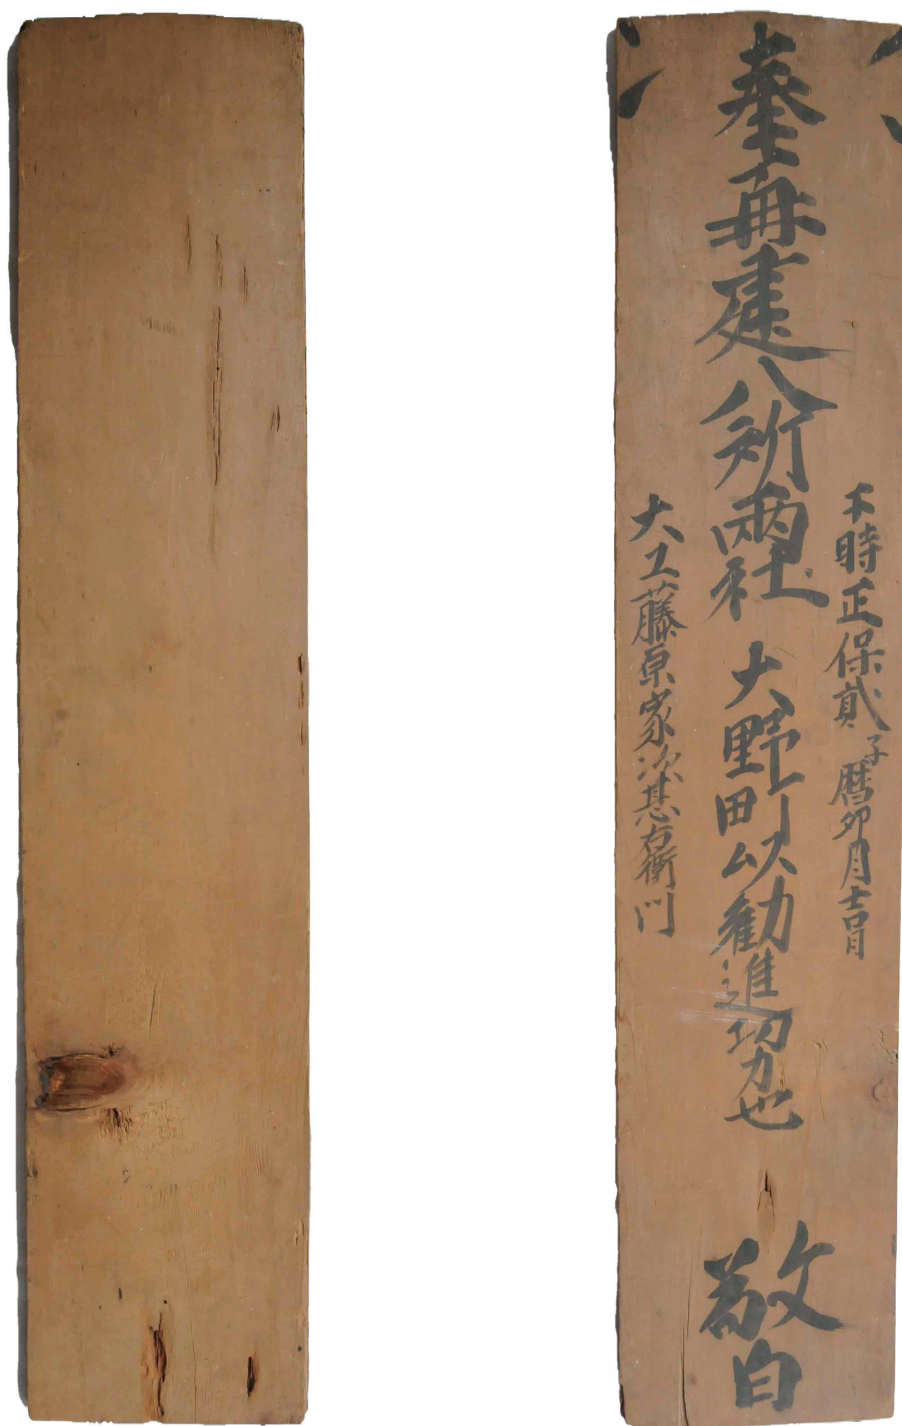 于時正保貳子暦卯月吉日
奉再建八所両社大野町以勧進功力也
敬白
大工藤原家次甚右衛門